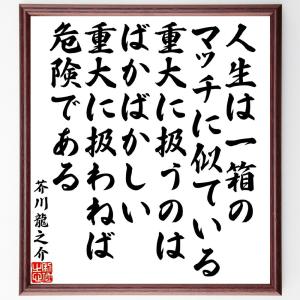 人生は一箱の
マッチに似ている
重大に扱うのは
ばかばかしい
重大に扱わねば
危険である
芥川龍之介